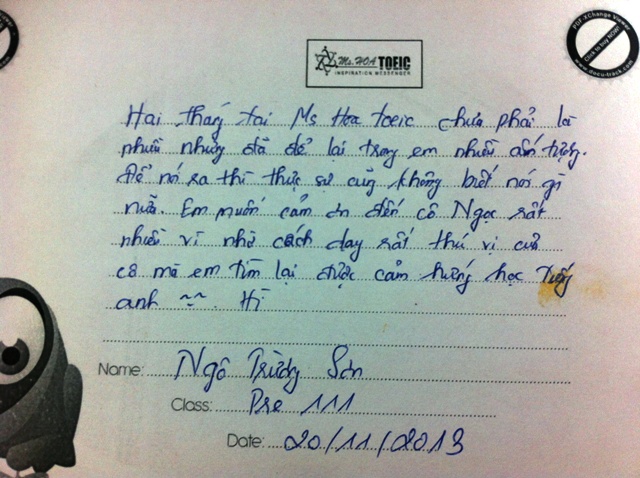 PDF-XChange Viewer
Click to buy NOW!
www.docu-track.com
Ms. HOA TOEIC
INSPIRATION MESSENGER
Hai tháng tại Ms Hoa toeic chưa phải là
nhiều nhưng đã để lại trong em nhiều ấn tượng.
Để nói ra thì thực sự cũng không biết nói gì
nữa. Em muốn cảm ơn đến cô Ngọc rất
nhiều vì nhờ cách dạy rất thú vị của
cô mà em tìm lại được cảm hứng học Tiếng
anh ~~. Hì
Name: Ngô Trường Sơn
Class: Pre 111
Date: 20/11/2013